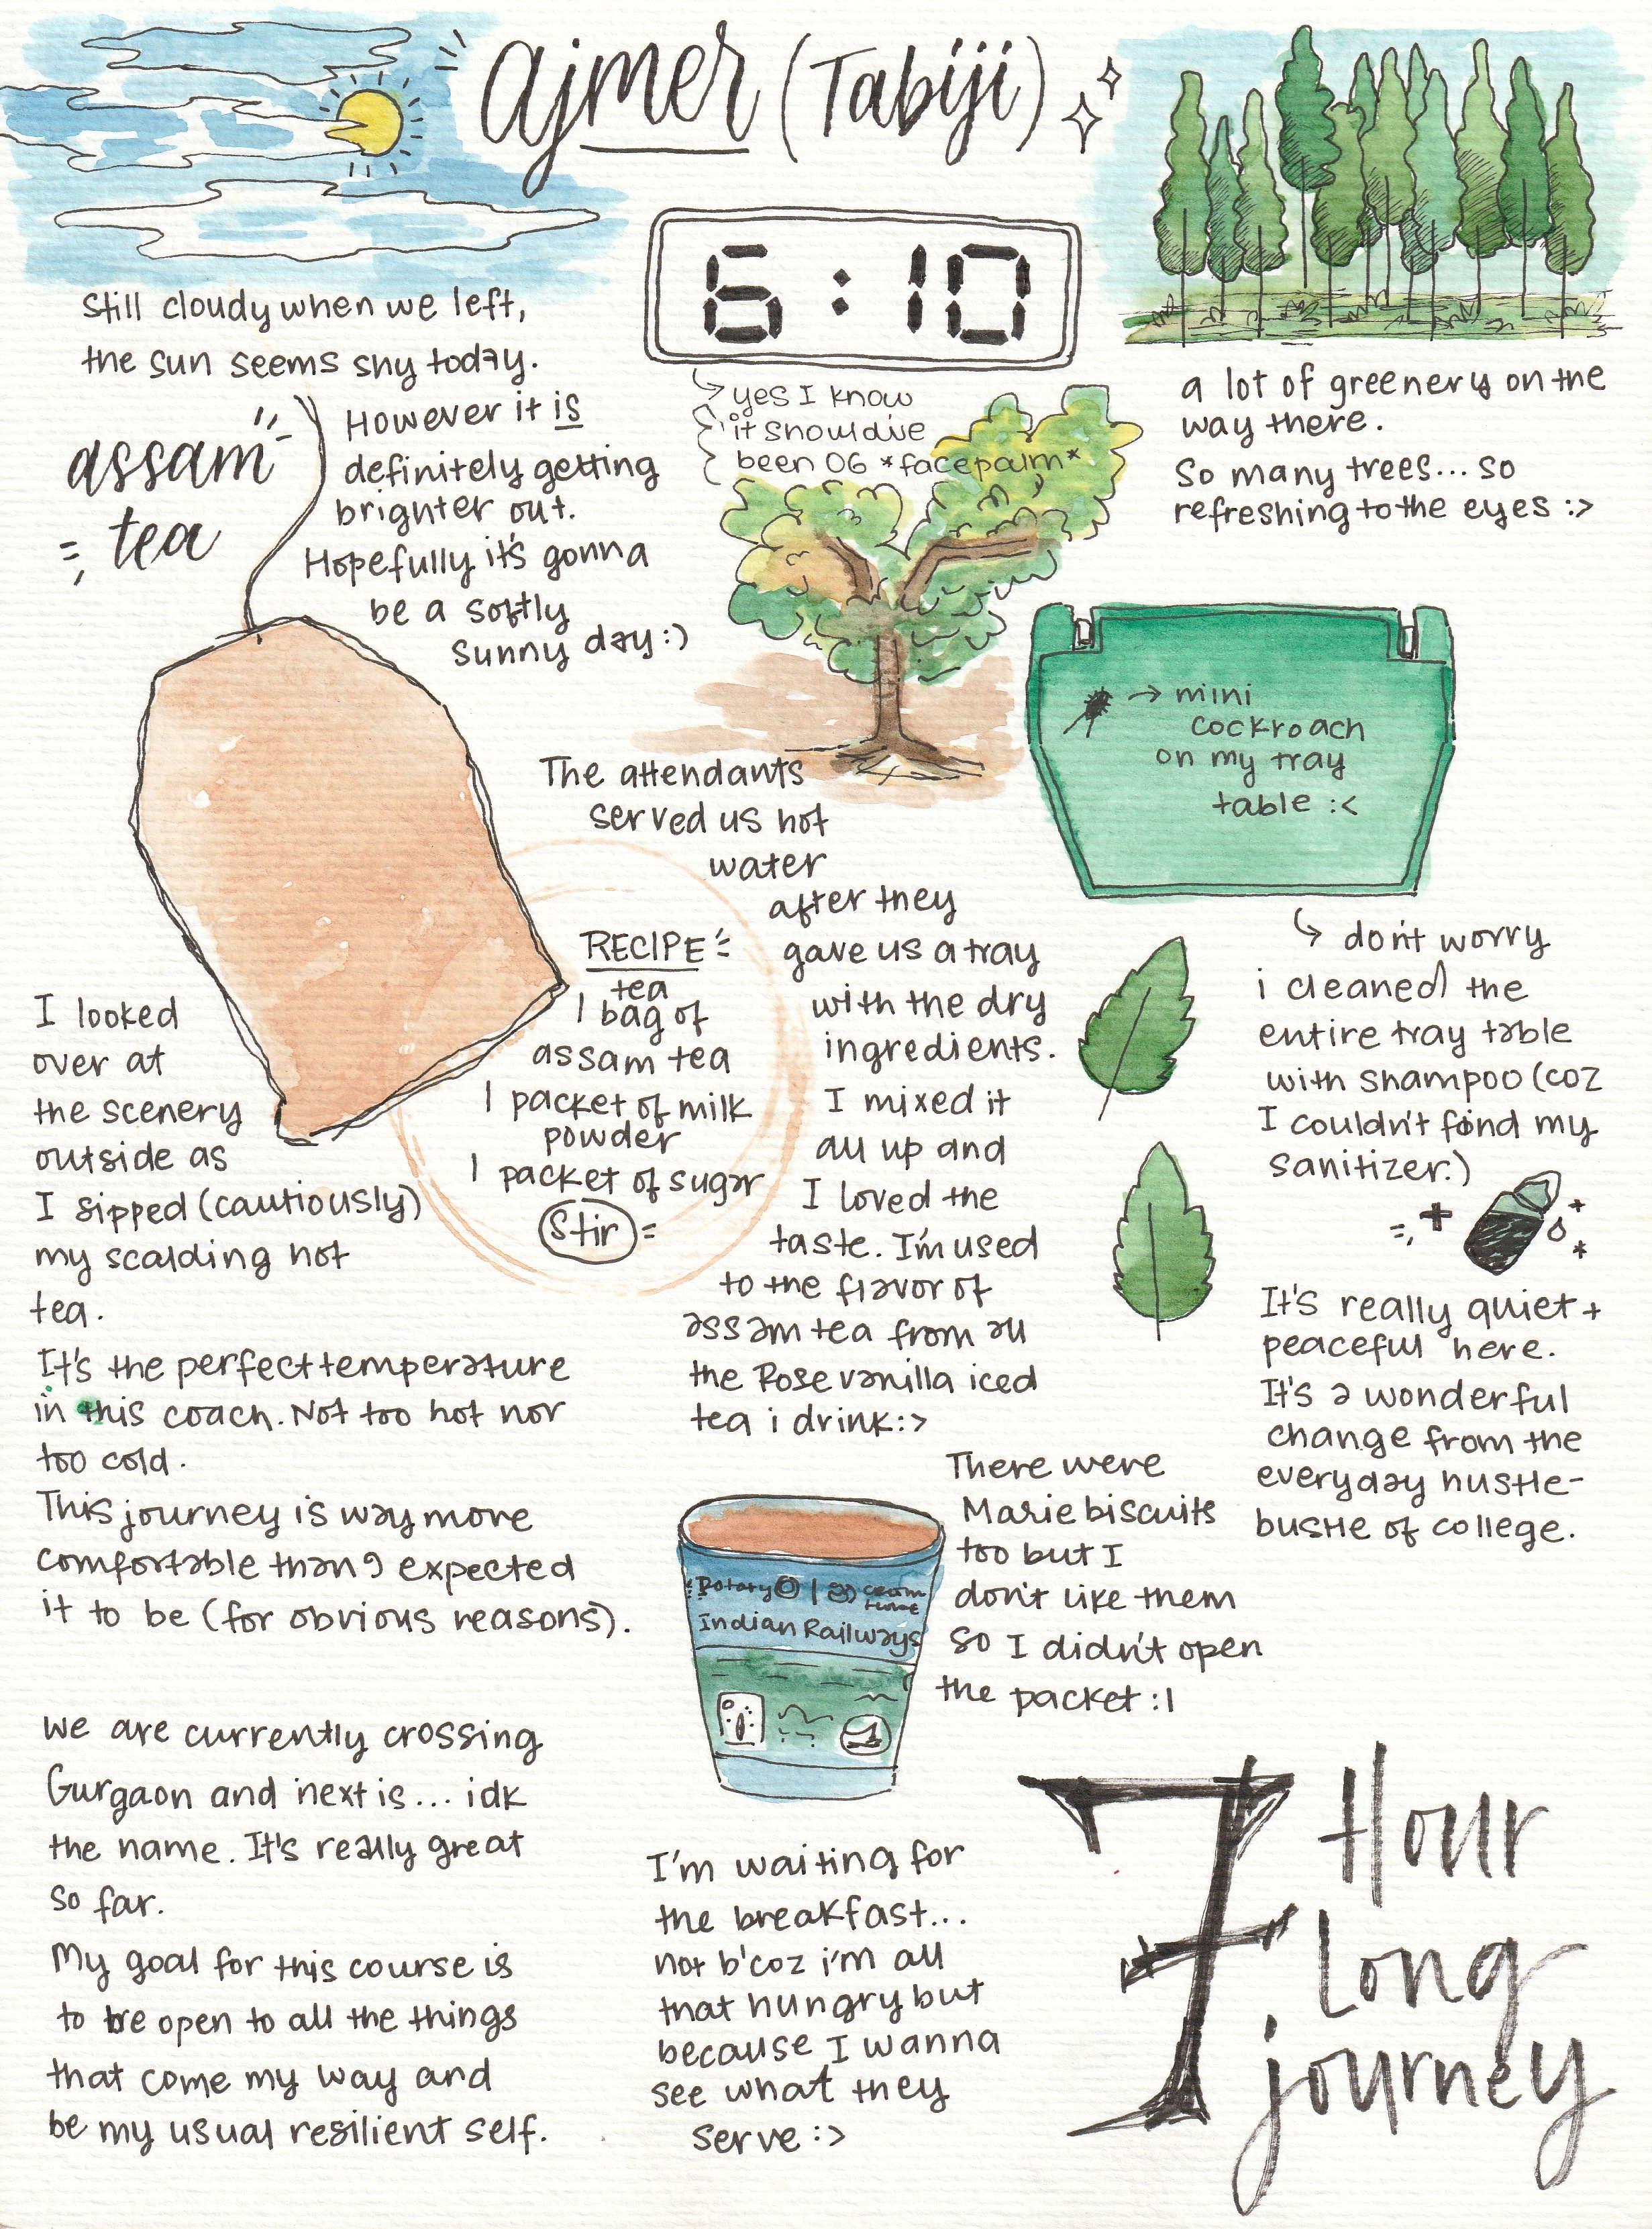 ajmer (Tabiji)
Still cloudy when we left,
the sun seems shy today.
However it is
definitely getting
brighter out.
Hopefully it's gonna
be a softly
sunny day :)
assam
tea
6:10
yes I know
it should've
been 06 *facepalm*
a lot of greenery on the
way there.
So many trees... so
refreshing to the eyes :>
mini
cockroach
on my tray
table :<
don't worry
i cleaned the
entire tray table
with shampoo (coz
I couldn't find my
sanitizer.)
It's really quiet +
peaceful here.
It's a wonderful
change from the
everyday hustle-
bustle of college.
The attendants
served us hot
water
after they
gave us a tray
with the dry
ingredients.
I mixed it
all up and
I loved the
taste. I'm used
to the flavor of
assam tea from all
the Rose vanilla iced
tea i drink :>
RECIPE
tea
1 bag of
assam tea
1 packet of milk
powder
1 packet of sugar
Stir
I looked
over at
the scenery
outside as
I sipped (cautiously)
my scalding hot
tea.
It's the perfect temperature
in this coach. Not too hot nor
too cold.
This journey is way more
comfortable than I expected
it to be (for obvious reasons).
we are currently crossing
Gurgaon and next is... idk
the name. It's really great
so far.
My goal for this course is
to be open to all the things
that come my way and
be my usual resilient self.
There were
Marie biscuits
too but I
don't like them
so I didn't open
the packet :|
Rotary |
Indian Railways
I'm waiting for
the breakfast...
not b'coz i'm all
that hungry but
because I wanna
see what they
serve :>
7 Hour
long
journey